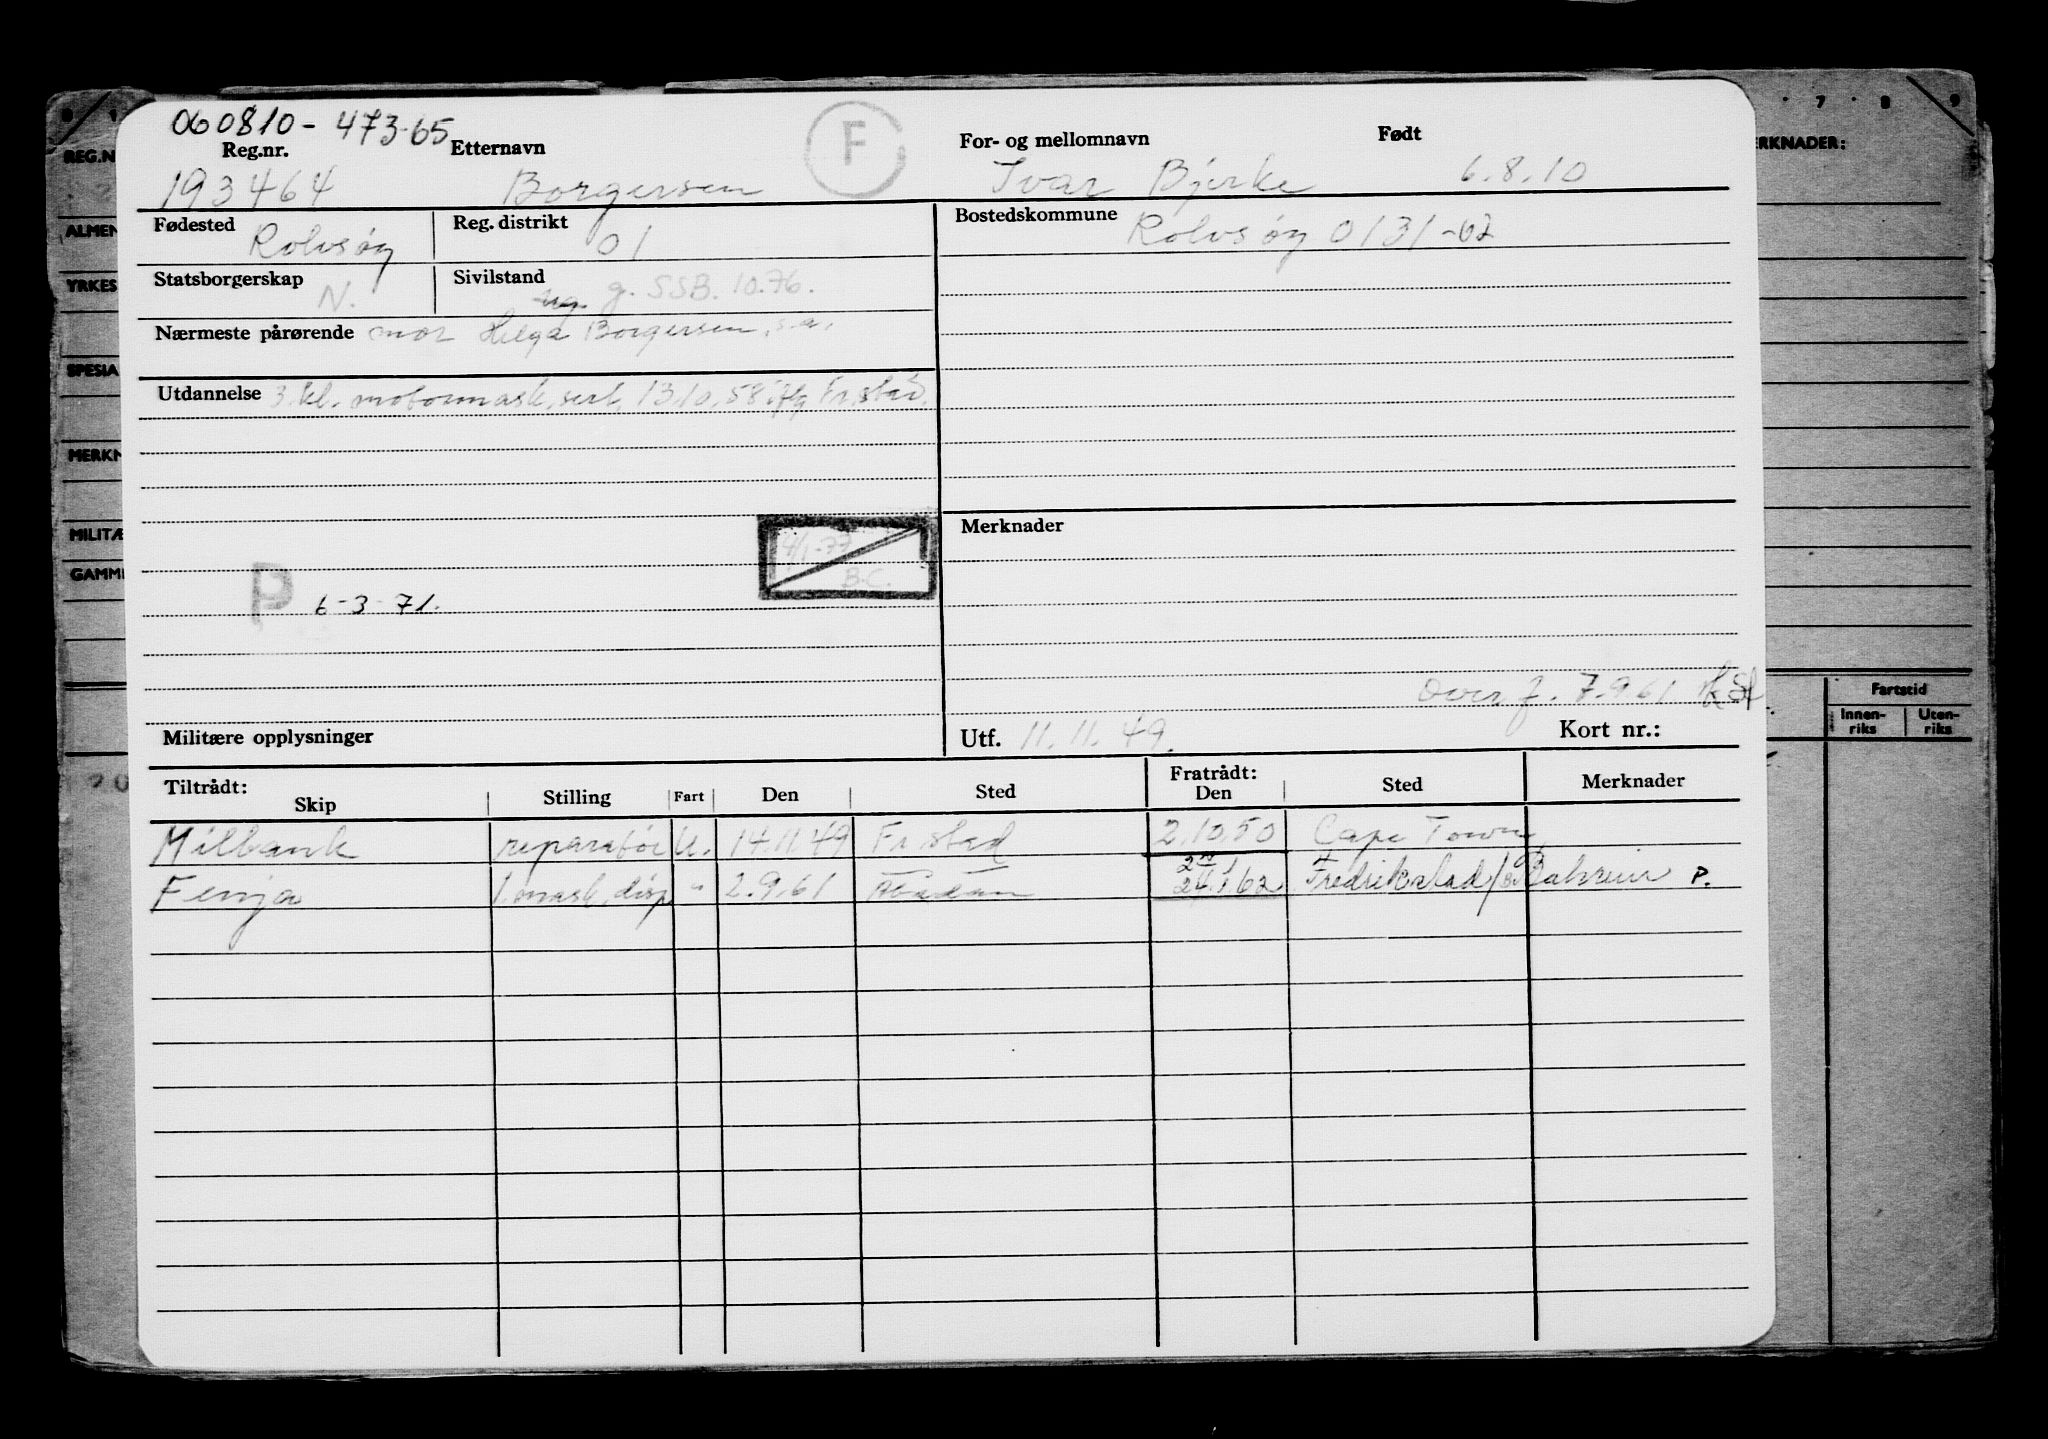 060810-473-65
F
Reg.nr. Etternavn For- og mellomnavn Født
193464 Borgersen Ivar Bjerke 6.8.10
Fødested Rolvsøy Reg. distrikt 01 Bostedskommune Rolvsøy 0131-02
Statsborgerskap N. Sivilstand ug. g. SSB. 10.76.
Nærmeste pårørende mor Helga Borgersen, s.a.
Utdannelse 3. kl. motormask. sert. 13.10.58 Fr.stad.
Merknader
4/1-77
B.C.
P 6-3-71.
overf. 7.9.61
Militære opplysninger Utf. 11.11.49. Kort nr.:
Tiltrådt: Fratrådt:
Skip Stilling Fart Den Sted Den Sted Merknader
Milbank reparatør U. 14.11.49 Fr.stad 2.10.50 Cape Town
Fenja 1. mask, disp " 2.9.61 Abadan 24.1.62 Fredrikstad/Bahrein P.
7 8 9
REG.N
ERKNADER:
ALMEN
YRKES
SPESIA
MERKN
MILITÆ
GAMM
Fartstid
Innen-
riks
Uten-
riks
20